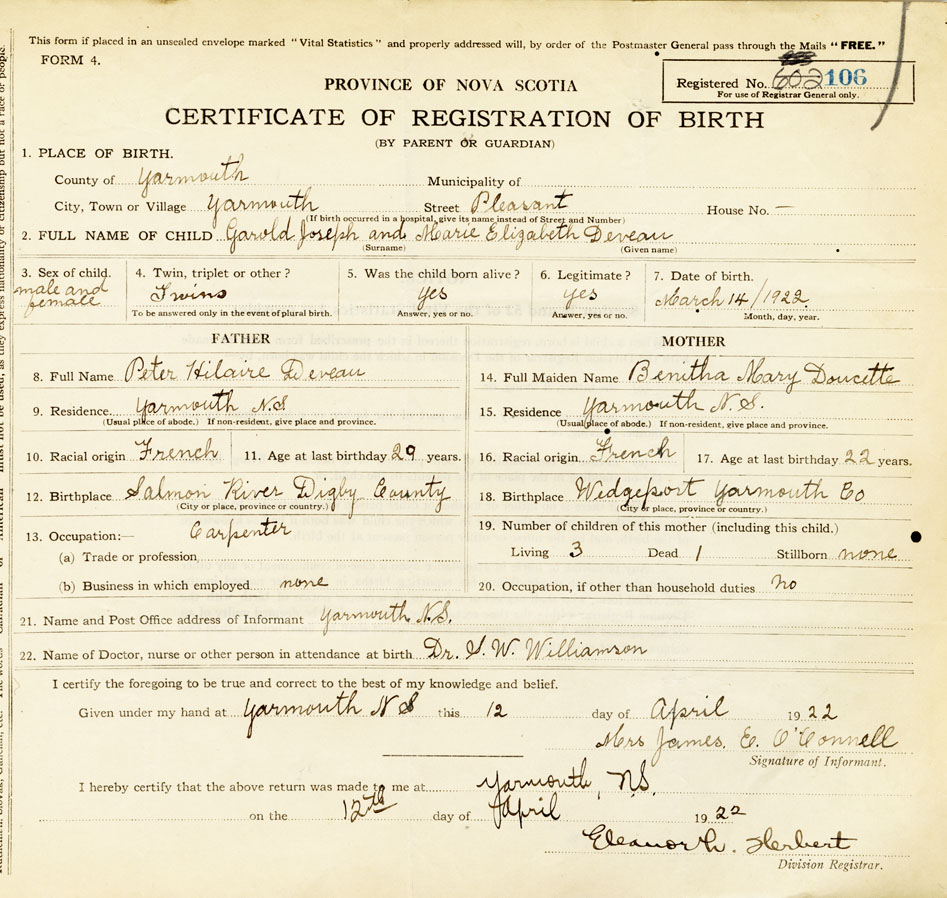 This form if placed in an unsealed envelope marked "Vital Statistics" and properly addressed will, by order of the Postmaster General pass through the Mails "FREE."
FORM 4.
PROVINCE OF NOVA SCOTIA
Registered No. 602 106
For use of Registrar General only.
CERTIFICATE OF REGISTRATION OF BIRTH
(BY PARENT OR GUARDIAN)
1. PLACE OF BIRTH.
County of Yarmouth Municipality of
City, Town or Village Yarmouth Street Pleasant House No. —
(If birth occurred in a hospital, give its name instead of Street and Number)
2. FULL NAME OF CHILD Garold Joseph and Marie Elizabeth Deveau
(Surname) (Given name)
3. Sex of child. 4. Twin, triplet or other? 5. Was the child born alive? 6. Legitimate? 7. Date of birth.
male and female Twins yes yes March 14/1922.
To be answered only in the event of plural birth. Answer, yes or no. Answer, yes or no. Month, day, year.
FATHER MOTHER
8. Full Name Peter Hilaire Deveau 14. Full Maiden Name Benitha Mary Doucette
9. Residence. Yarmouth N.S 15. Residence Yarmouth N.S.
(Usual place of abode.) If non-resident, give place and province. (Usual place of abode.) If non-resident, give place and province.
10. Racial origin French 11. Age at last birthday 29 years. 16. Racial origin French 17. Age at last birthday 22 years.
12. Birthplace Salmon River Digby County 18. Birthplace Wedgeport Yarmouth Co
(City or place, province or country.) (City or place, province or country.)
13. Occupation:— Carpenter 19. Number of children of this mother (including this child.)
(a) Trade or profession Living 3 Dead 1 Stillborn none
(b) Business in which employed none 20. Occupation, if other than household duties no
21. Name and Post Office address of Informant Yarmouth N.S.
22. Name of Doctor, nurse or other person in attendance at birth Dr. S. W. Williamson
I certify the foregoing to be true and correct to the best of my knowledge and belief.
Given under my hand at Yarmouth N S this 12 day of April 1922
Mrs James. E. O'Connell
Signature of Informant.
I hereby certify that the above return was made to me at Yarmouth, N.S.
on the 12th day of April 1922
Eleanor h. Herbert
Division Registrar.